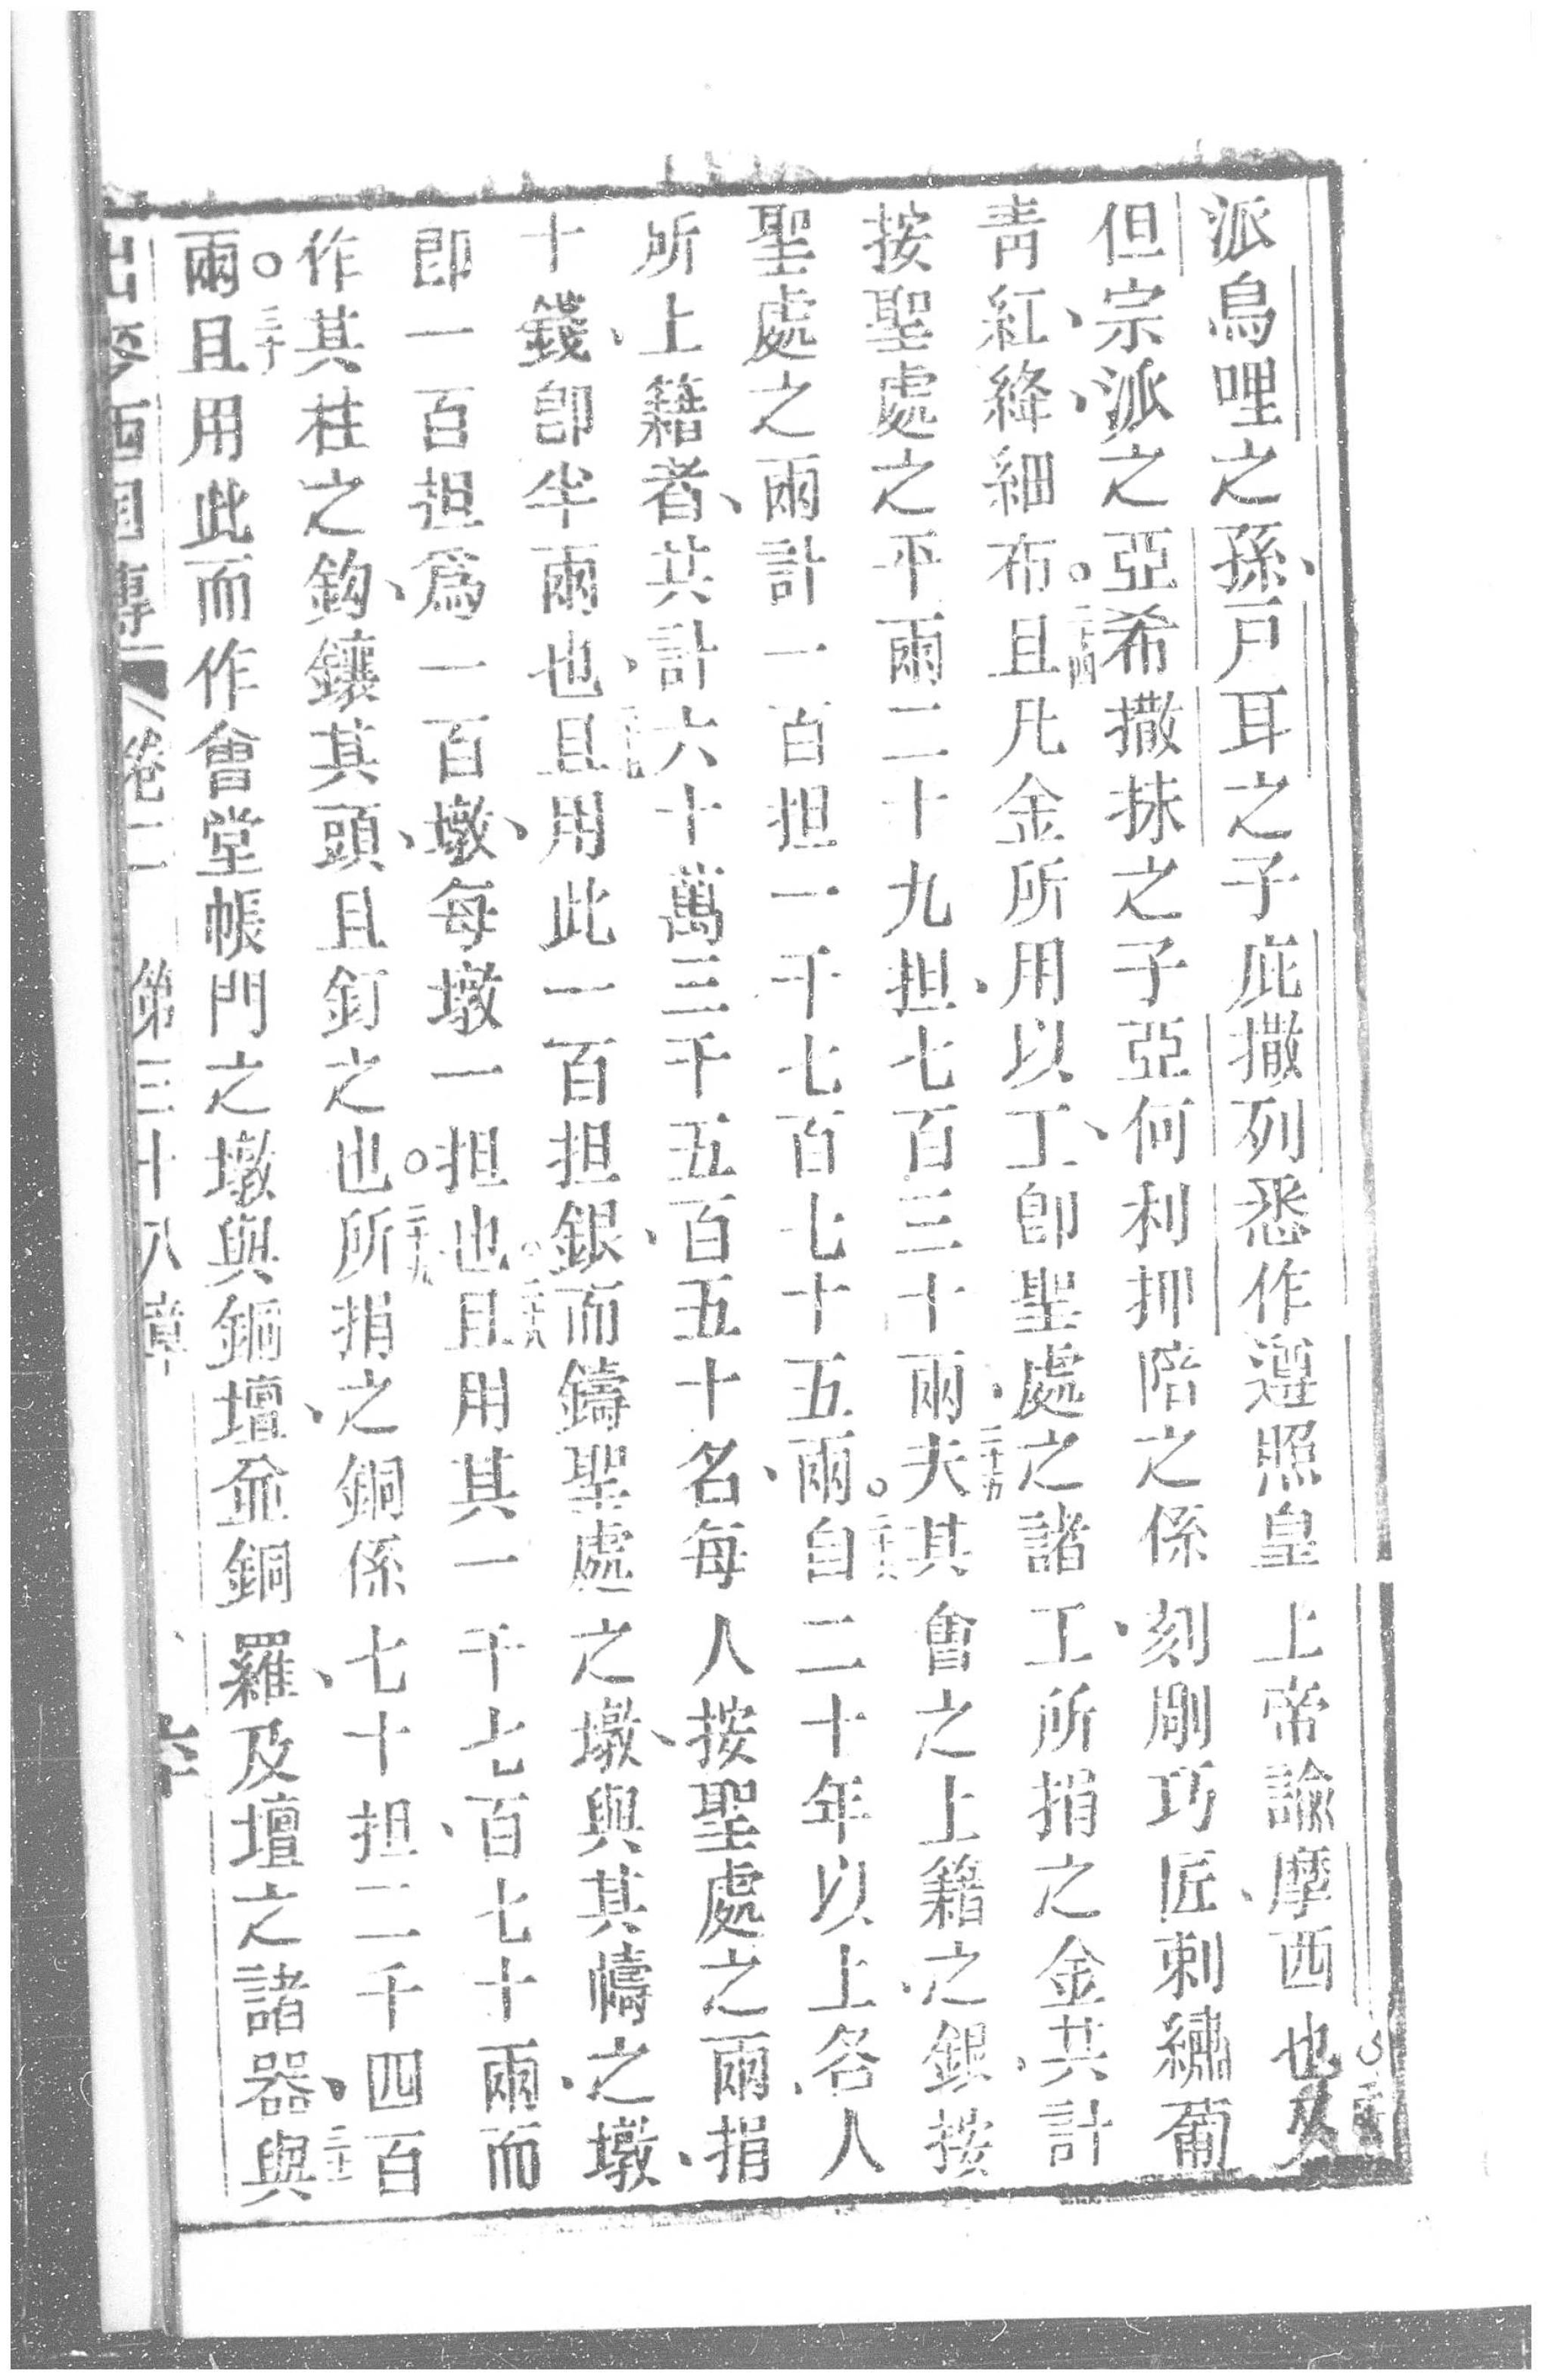 派烏哩之孫、戶耳之子庇撒列悉作遵照皇上帝諭摩西也。二十三又
但宗派之亞希撒抹之子亞何利抑陪之係刻剛巧匠刺繡葡
青、紅、絳細布。二十四且凡金所用以工、卽聖處之諸工、所捐之金共計
按聖處之平兩二十九担、七百三十兩、二十五夫其會之上籍之銀、按
聖處之兩計一百担一千七百七十五兩。二十六自二十年以上各人
所上籍者、共計六十萬三千五百五十名、每人按聖處之兩捐
十錢、卽半兩也、二十七且用此一百担銀、而鑄聖處之墩、與其幬之墩、
卽一百担爲一百墩、每墩一担也。二十八且用其一千七百七十兩、而
作其柱之鈎、鑲其頭、且釘之也。二十九所捐之銅係七十担二千四百
兩。三十且用此而作會堂帳門之墩與銅壇、並銅羅、及壇之諸器、三十一與
出麥西國傳 卷二 第三十八章 六十